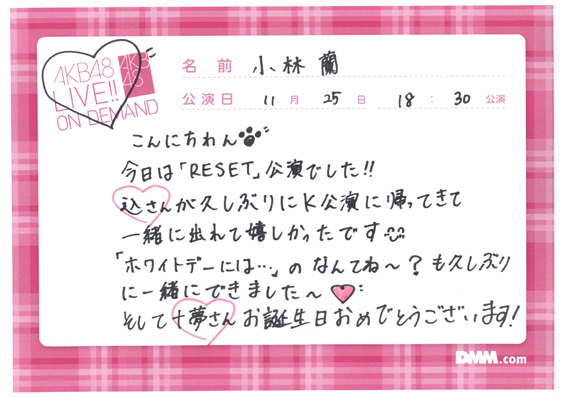 AKB48
LIVE!!
ON DEMAND
AKB
48
名前 小林 蘭
公演日 11月 25日 18:30公演
こんにちわん
今日は「RESET」公演でした!!
込さんが久しぶりにK公演に帰ってきて
一緒に出れて嬉しかったです
「ホワイトデーには…」のなんてね〜?も久しぶり
に一緒にできました〜
そして十夢さんお誕生日おめでとうございます!
DMM.com